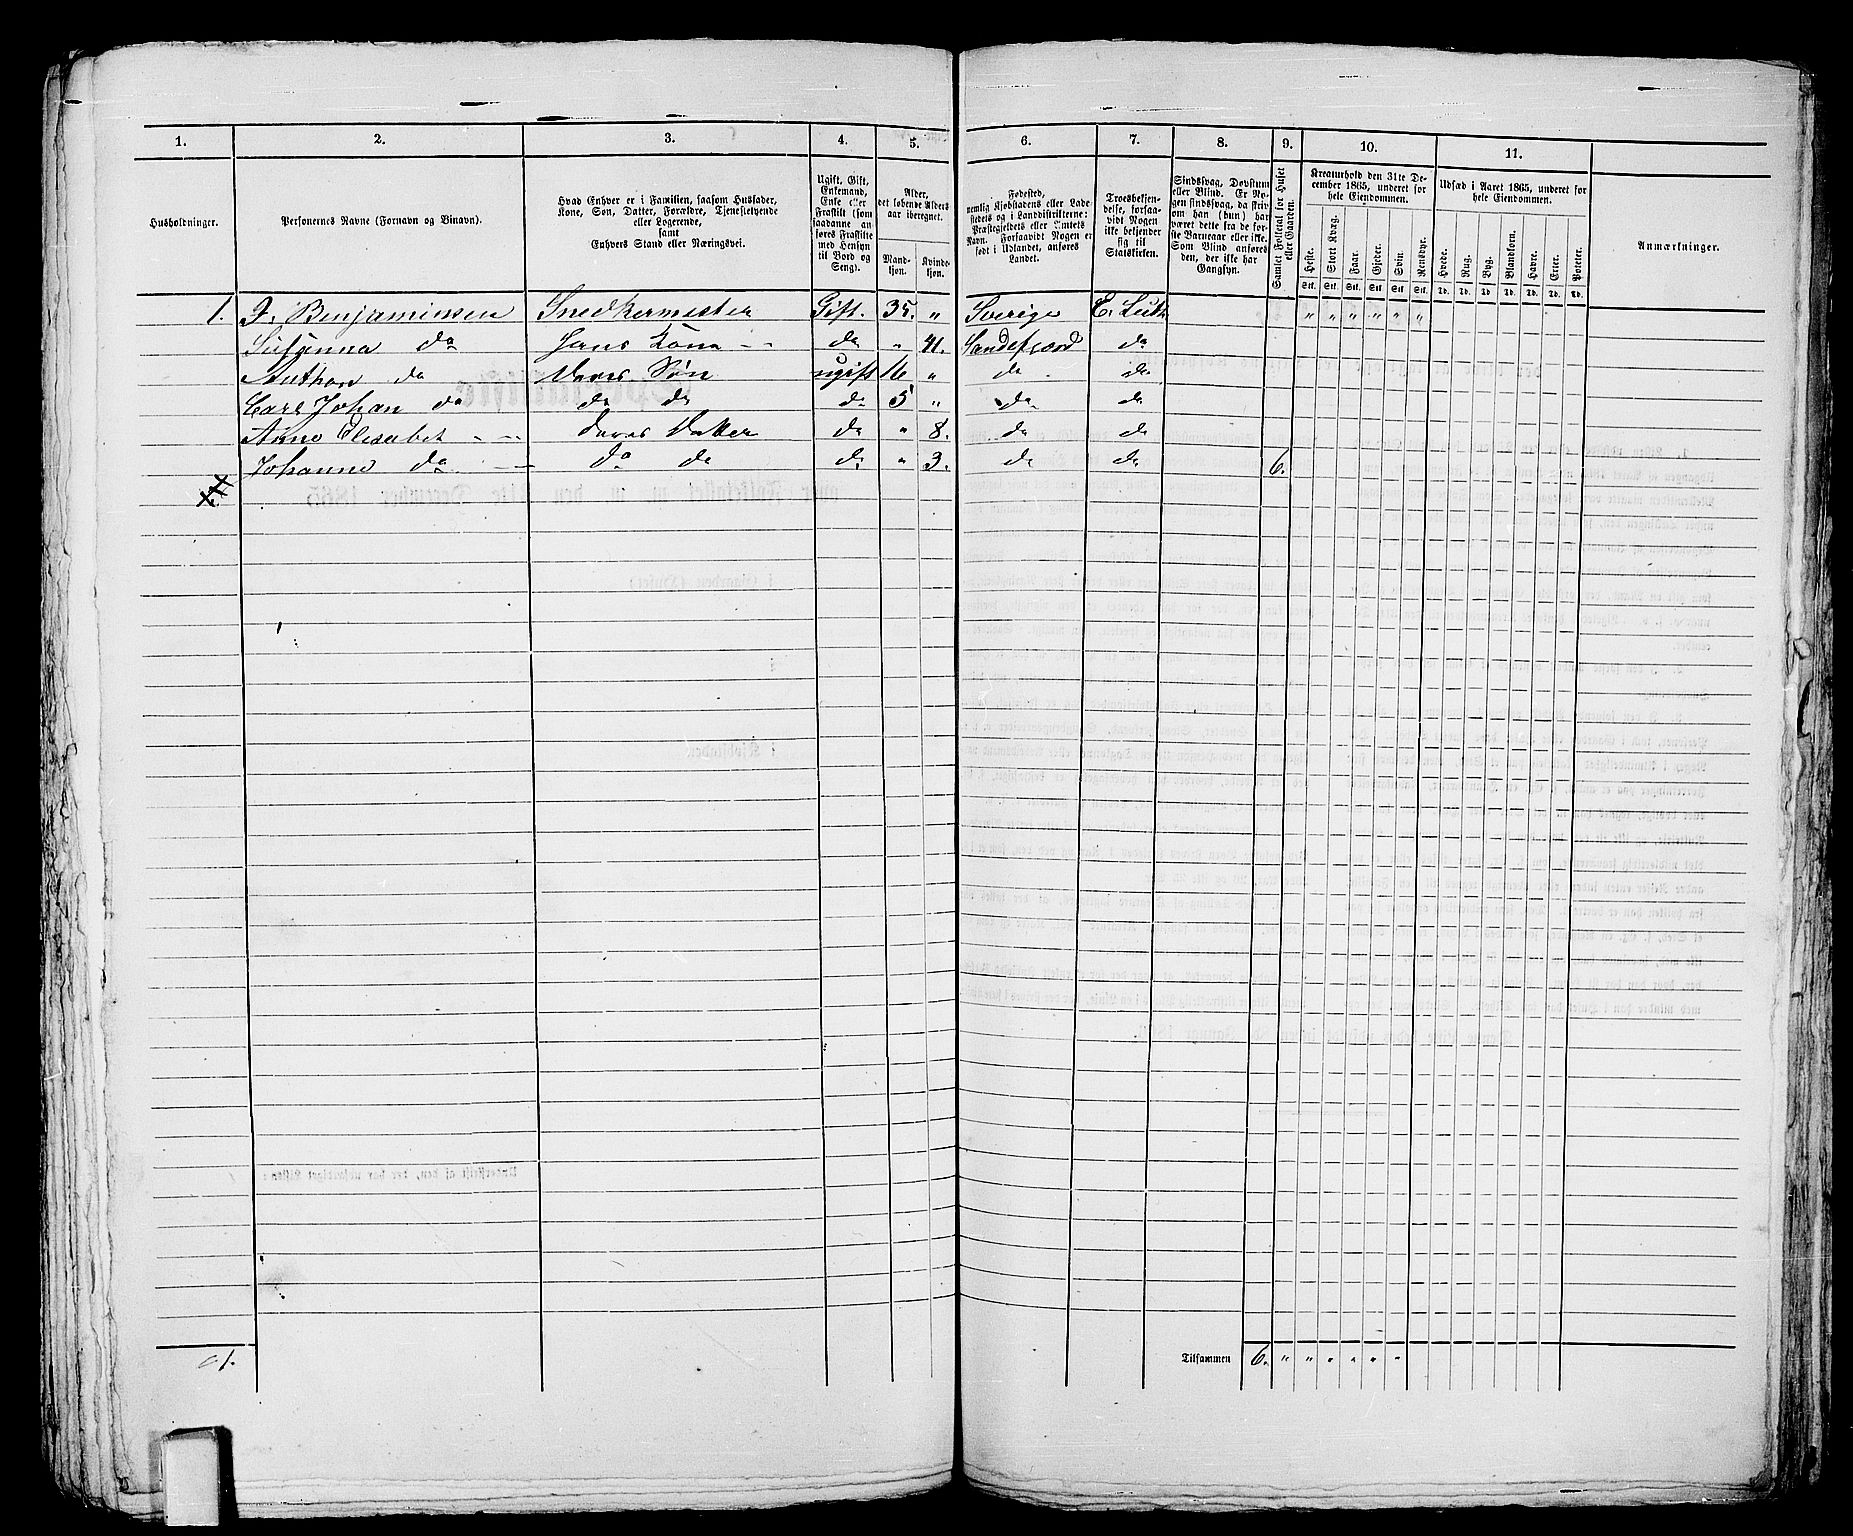 1. 2. 3. 4. 5. 6. 7. 8. 9. 10. 11.
Husholdninger.
Personernes Navne (Fornavn og Binavn).
Hvad Enhver er i Familien, saasom Husfader,
Kone, Søn, Datter, Forældre, Tjenestetyende
eller Logerende,
samt
Enhvers Stand eller Næringsvei.
Ugift, Gift,
Enkemand,
Enke eller
Fraskilt (som
saadanne an-
føres Fraskilte
med Hensyn
til Bord og
Seng).
Alder,
det løbende Alders-
aar iberegnet.
Mand-
kjøn.
Kvinde-
kjøn.
Fødested,
nemlig Kjøbstadens eller Lade-
stedets og i Landdistrikterne:
Præstegjeldets eller Amtets
Navn. Forsaavidt Nogen er
født i Udlandet, anføres
Landet.
Troesbekjen-
delse, forsaa-
vidt Nogen
ikke bekjender
sig til
Statskirken.
Sindssvag, Døvstum
eller Blind. Er No-
gen sindssvag, da skriv
om han (hun) har
været dette fra de før-
ste Barneaar eller ikke.
Som Blind anføres
den, der ikke har
Gangsyn.
Samlet Folketal for Huset
eller Gaarden.
Kreaturhold den 31te De-
cember 1865, underet for
hele Eiendommen.
Heste. Stort Kvæg. Faar. Gjeder. Svin. Rensdyr.
Stk. Stk. Stk. Stk. Stk. Stk.
Udsæd i Aaret 1865, underet for
hele Eiendommen.
Hvede. Rug. Byg. Blandkorn. Havre. Erter. Poteter.
Td. Td. Td. Td. Td. Td. Td.
Anmærkninger.
1. J. Benjaminsen Snedkermester Gift. 35. " Sverige E. Luth " " " " " "
Susanna do Hans Kone do " 41. Sandefjord do
Anthon do Deres Søn ugift 16 " do do
Carl Johan do do do do 5 " do do
Anne Elisabet - - deres Datter do " 8. do do
Johanne do do do do " 3. do do 6.
1.
Tilsammen 6. " " " " " "